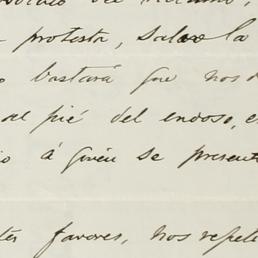 protesta, salvo la
bastará que nos d
al pié del endoso, e
á quien se present
favores, nos repete